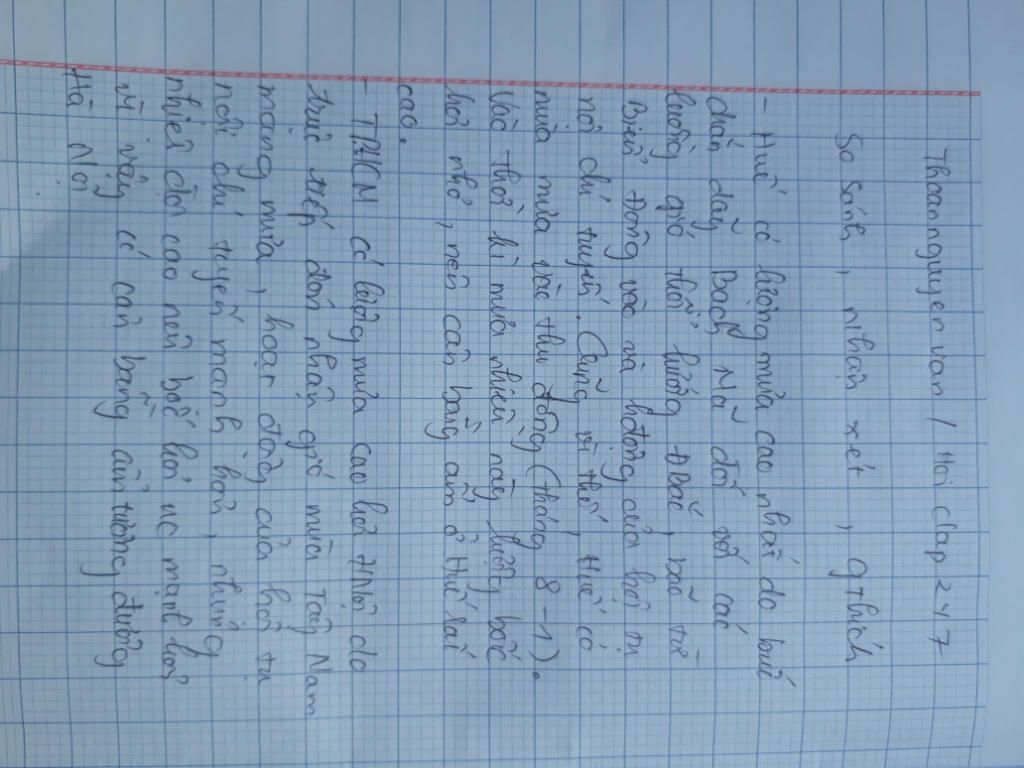 Thoannguyenvan / Hoi clap 247
So sánh, nhận xét, gthích
- Huế có lượng mưa cao nhất do bức
chắn dãy Bạch Mã đối với các
luồng gió thổi hướng ĐBắc, bão từ
Biển Đông vào và hđộng của hội tụ
nội chí tuyến. Cũng vì thế, Huế có
mùa mưa vào thu đông (tháng 8 - 1).
Vào thời kì mưa nhiều này, lượng bốc
hơi nhỏ, nên cân bằng ẩm ở Huế rất
cao.
- TPHCM có lượng mưa cao hơn HNội do
trực tiếp đón nhận gió mùa Tây Nam
mang mưa, hoạt động của hội tụ
nội chí tuyến mạnh hơn, nhưng
nhiệt độ cao nên bốc hơi nc mạnh hơn
vì vậy có cân bằng ẩm tương đương
Hà Nội